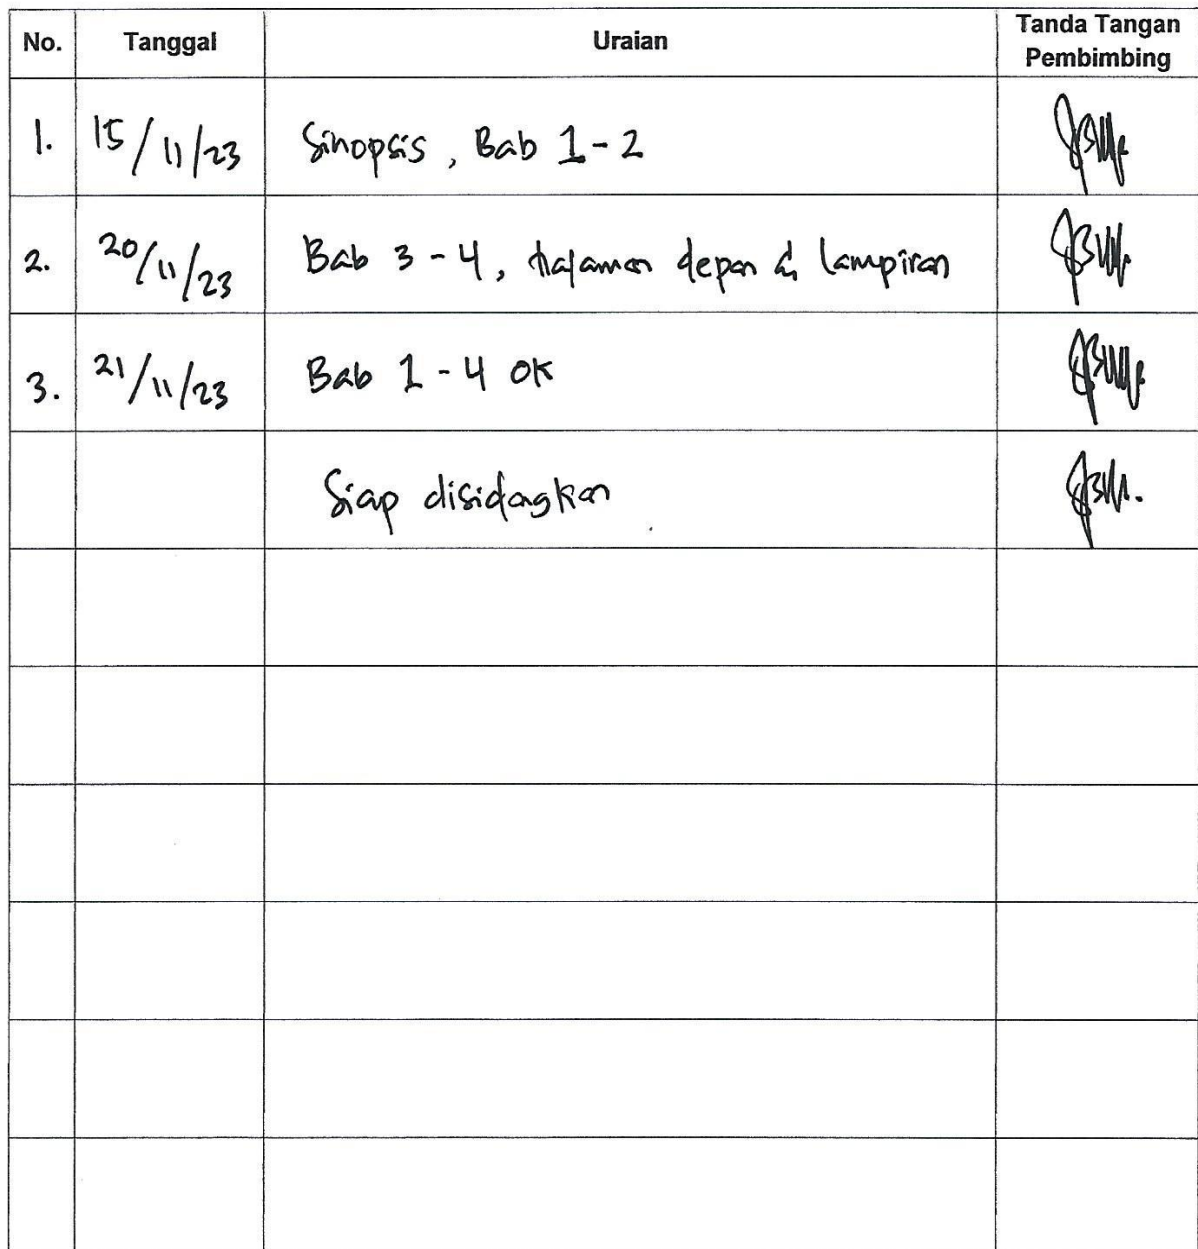 No. Tanggal Uraian Tanda Tangan Pembimbing
1. 15/11/23 Sinopsis, Bab 1-2
2. 20/11/23 Bab 3-4, halaman depan & lampiran
3. 21/11/23 Bab 1-4 OK
Siap disidangkan